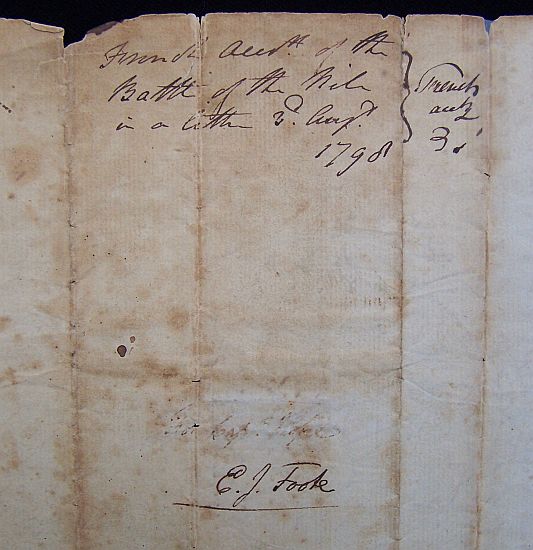 French Acct. of the
Battle of the Nile
in a letter 3d. Augt.
1798
French
acct
3
E. J. Foote